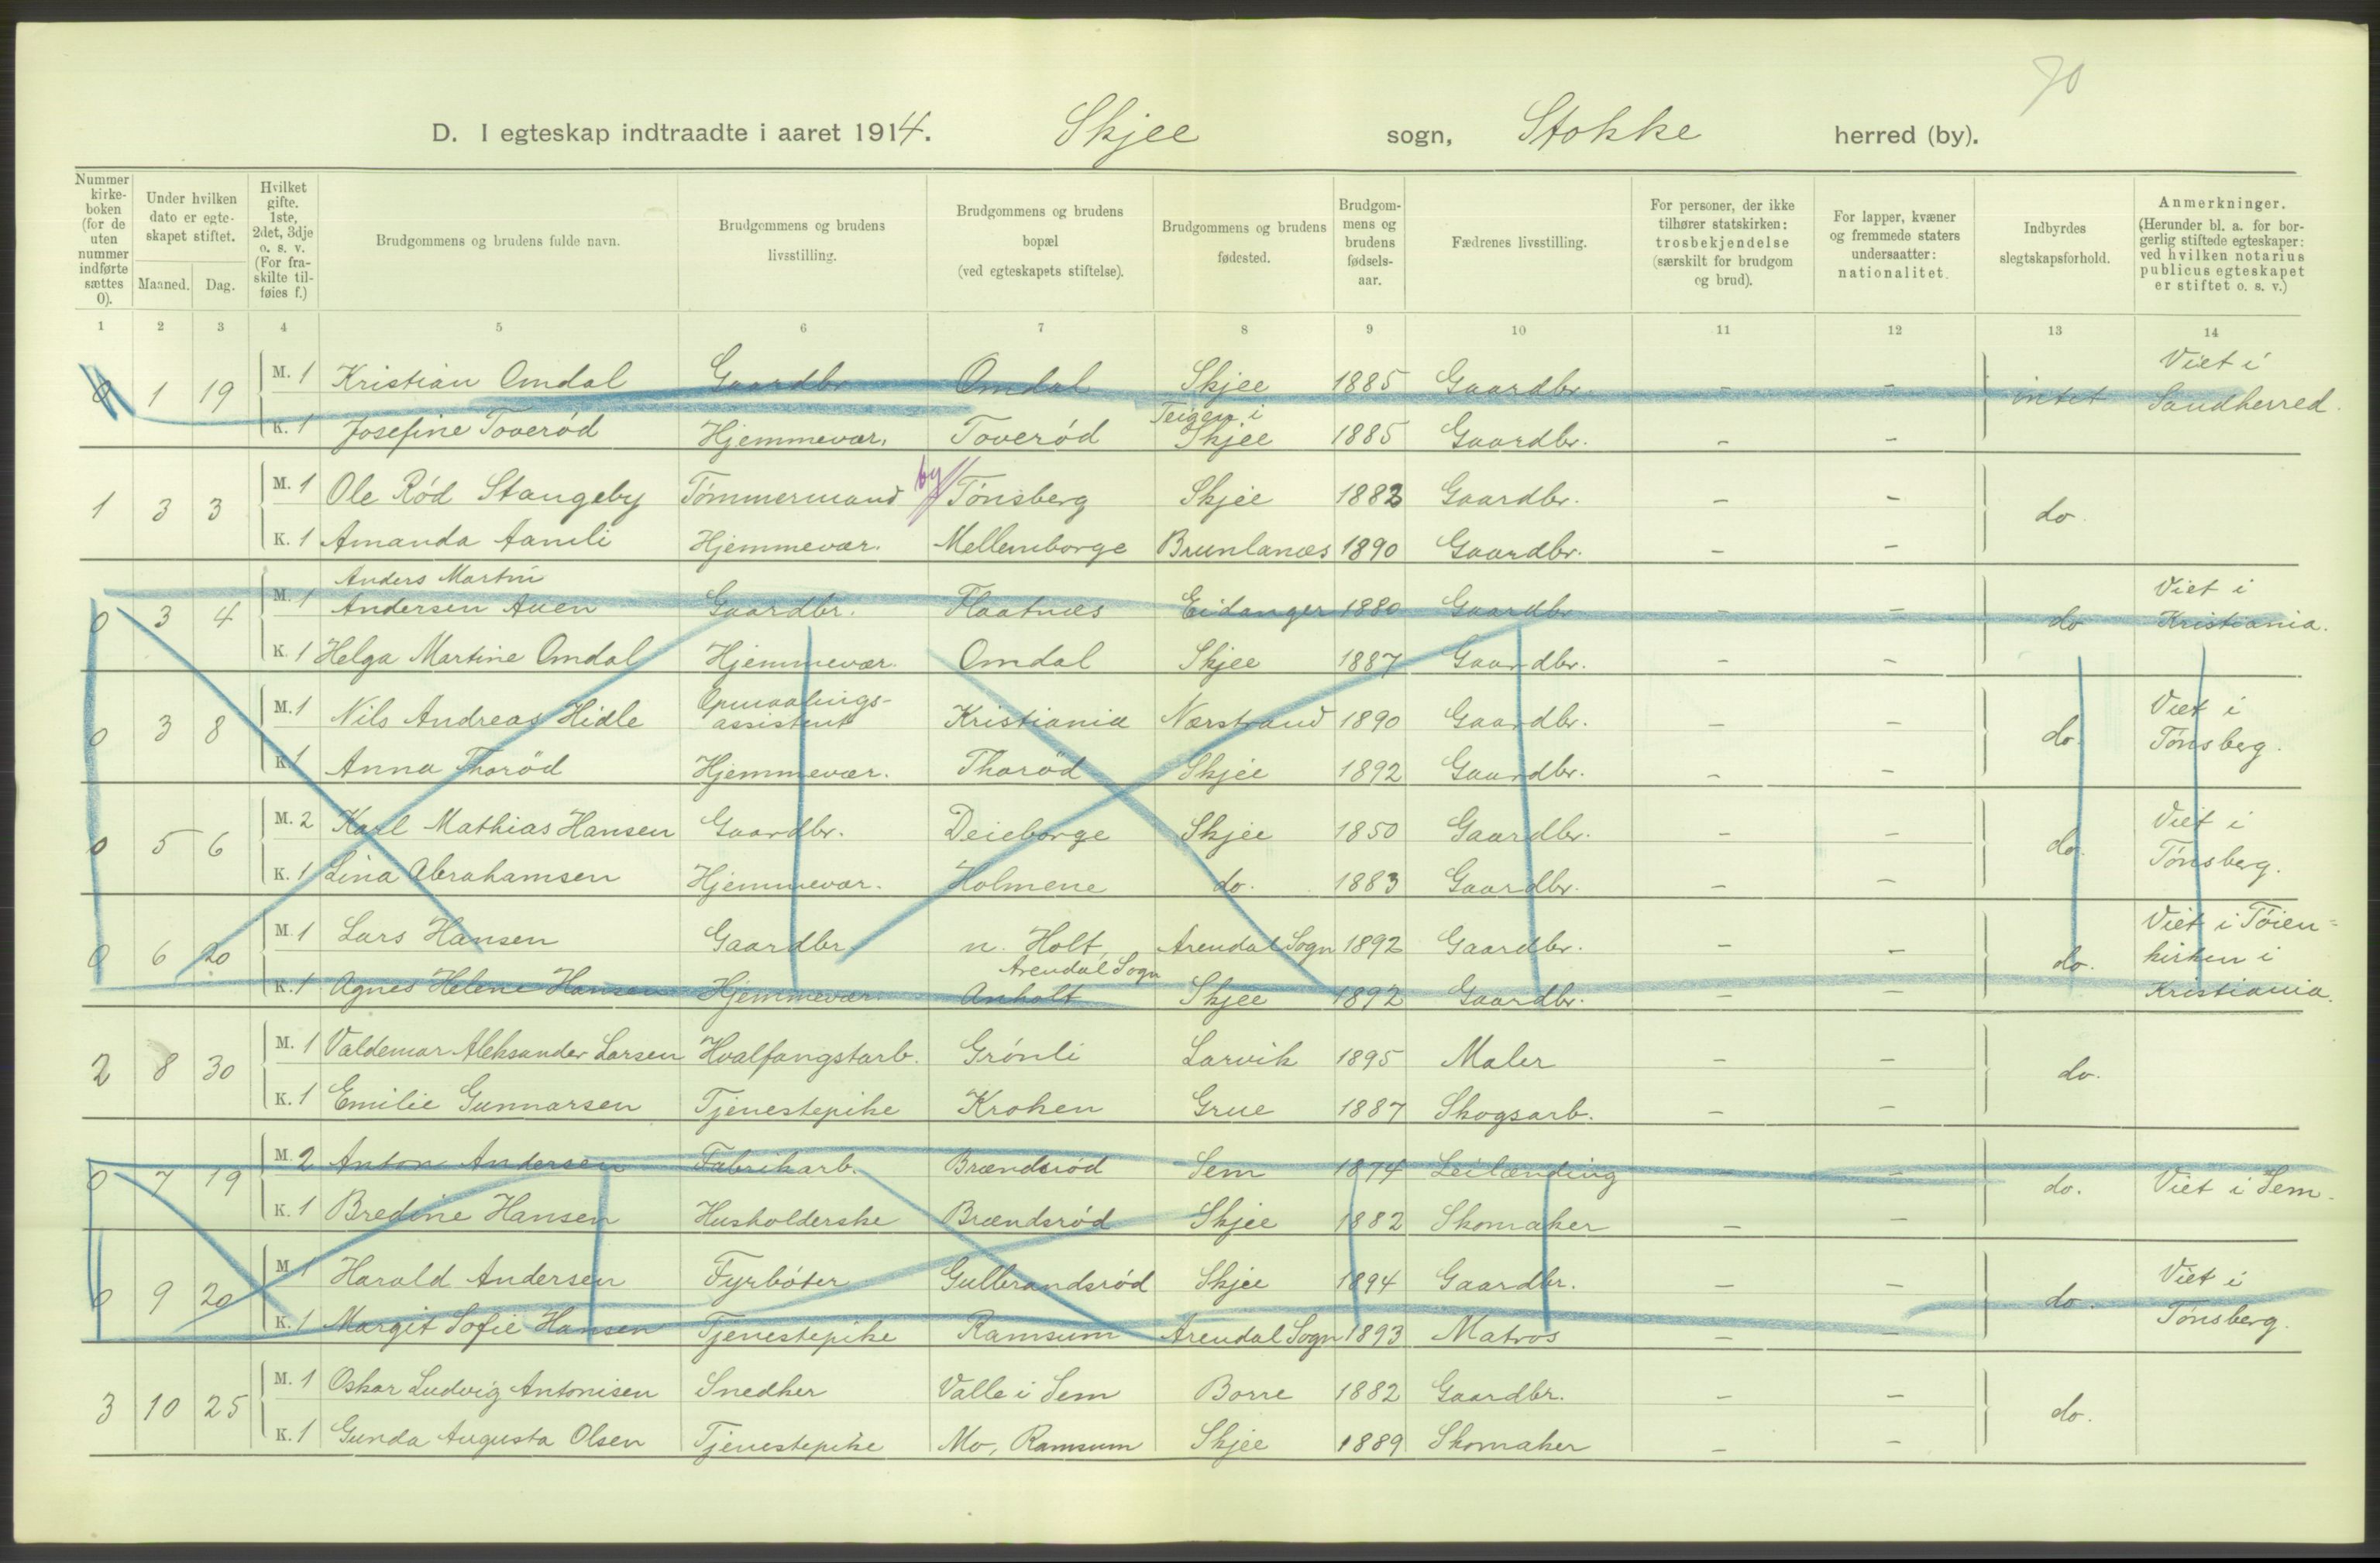 70
D. I egteskap indtraadte i aaret 1914. Skjee sogn, Stokke herred (by).
Nummer kirke- boken (for de uten nummer indførte sættes 0).
Under hvilken dato er egte- skapet stiftet.
Maaned. Dag.
Hvilket gifte. 1ste, 2det, 3dje o. s. v. (For fra- skilte til- føies f.)
Brudgommens og brudens fulde navn.
Brudgommens og brudens livsstilling.
Brudgommens og brudens bopæl (ved egteskapets stiftelse).
Brudgommens og brudens fødested.
Brudgom- mens og brudens fødsels- aar.
Fædrenes livsstilling.
For personer, der ikke tilhører statskirken: trosbekjendelse (særskilt for brudgom og brud).
For lapper, kvæner og fremmede staters undersaatter: nationalitet.
Indbyrdes slegtskapsforhold.
Anmerkninger. (Herunder bl. a. for bor- gerlig stiftede egteskaper: ved hvilken notarius publicus egteskapet er stiftet o. s. v.)
1 2 3 4 5 6 7 8 9 10 11 12 13 14
0 1 19 M. 1 Kristian Omdal Gaardbr. Omdal Skjee 1885 Gaardbr. - - intet Viet i Sandherred.
K. 1 Josefine Toverød Hjemmevær. Toverød Teigen i Skjee 1885 Gaardbr. - -
1 3 3 M. 1 Ole Rød Stangeby Tømmermand by Tønsberg Skjee 1882 Gaardbr. - - do.
K. 1 Amanda Aamli Hjemmevær. Mellemborge Brunlanæs 1890 Gaardbr. - -
0 3 4 M. 1 Anders Martin Andersen Auen Gaardbr. Flaatnæs Eidanger 1880 Gaardbr - - do Viet i Kristiania.
K. 1 Helga Martine Omdal Hjemmevær. Omdal Skjee 1887 Gaardbr. - -
0 3 8 M. 1 Nils Andreas Hidle Opmaalings- assistent Kristiania Nærstrand 1890 Gaardbr. - - do. Viet i Tønsberg.
K. 1 Anna Thorød Hjemmevær. Thorød Skjee 1892 Gaardbr. - -
0 5 6 M. 2 Karl Mathias Hansen Gaardbr. Deieborge Skjee 1850 Gaardbr. - - do. Viet i Tønsberg.
K. 1 Lina Abrahamsen Hjemmevær. Holmene do. 1883 Gaardbr. - -
0 6 20 M. 1 Lars Hansen Gaardbr. n. Holt, Arendal Sogn Arendal Sogn 1892 Gaardbr. - - do. Viet i Tøien= kirken i Kristiania.
K. 1 Agnes Helene Hansen Hjemmevær. Anholt Skjee 1892 Gaardbr. - -
2 8 30 M. 1 Valdemar Aleksander Larsen Hvalfangstarb. Grønli Larvik 1895 Maler - - do.
K. 1 Emilie Gunnarsen Tjenestepike Kroken Grue 1887 Skogsarb. - -
0 7 19 M. 2 Anton Andersen Fabrikarb. Brændsrød Sem 1874 Leilænding - - do. Viet i Sem.
K. 1 Bredine Hansen Husholderske Brændsrød Skjee 1882 Skomaker - -
0 9 20 M. 1 Harald Andersen Fyrbøter Gulbrandsrød Skjee 1894 Gaardbr. - - do. Viet i Tønsberg.
K. 1 Margit Sofie Hansen Tjenestepike Ramsum Arendal Sogn 1893 Matros - -
3 10 25 M. 1 Oskar Ludvig Antonisen Snedker Valle i Sem Borre 1882 Gaardbr. - - do.
K. 1 Gunda Augusta Olsen Tjenestepike Mo, Ramsum Skjee 1889 Skomaker - -